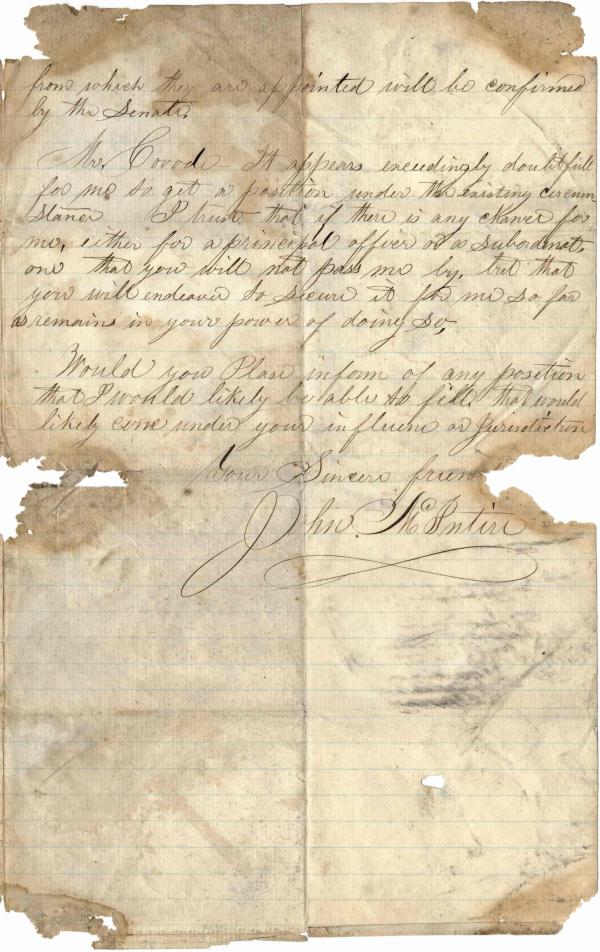 from which they are appointed will be confirmed
by the Senate.
Mr. Covode – It appears exceedingly doubtfull
for me to get a position under the existing circum
stance I trust that if there is any chance for
me, either for a principal officer or a subordinate
one that you will not pass me by, but that
you will endeavor to secure it for me so far
as remains in your power of doing so,
Would you Please inform of any position
that I would likely be able to fill that would
likely come under your influence or Jurisdiction
Your Sincere friend
John McIntire